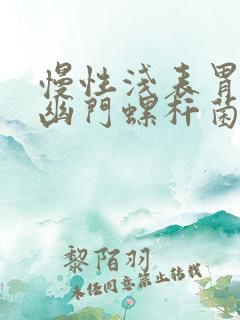 慢性浅表胃
幽门螺杆菌
黎陌羽
未经同意禁止转载